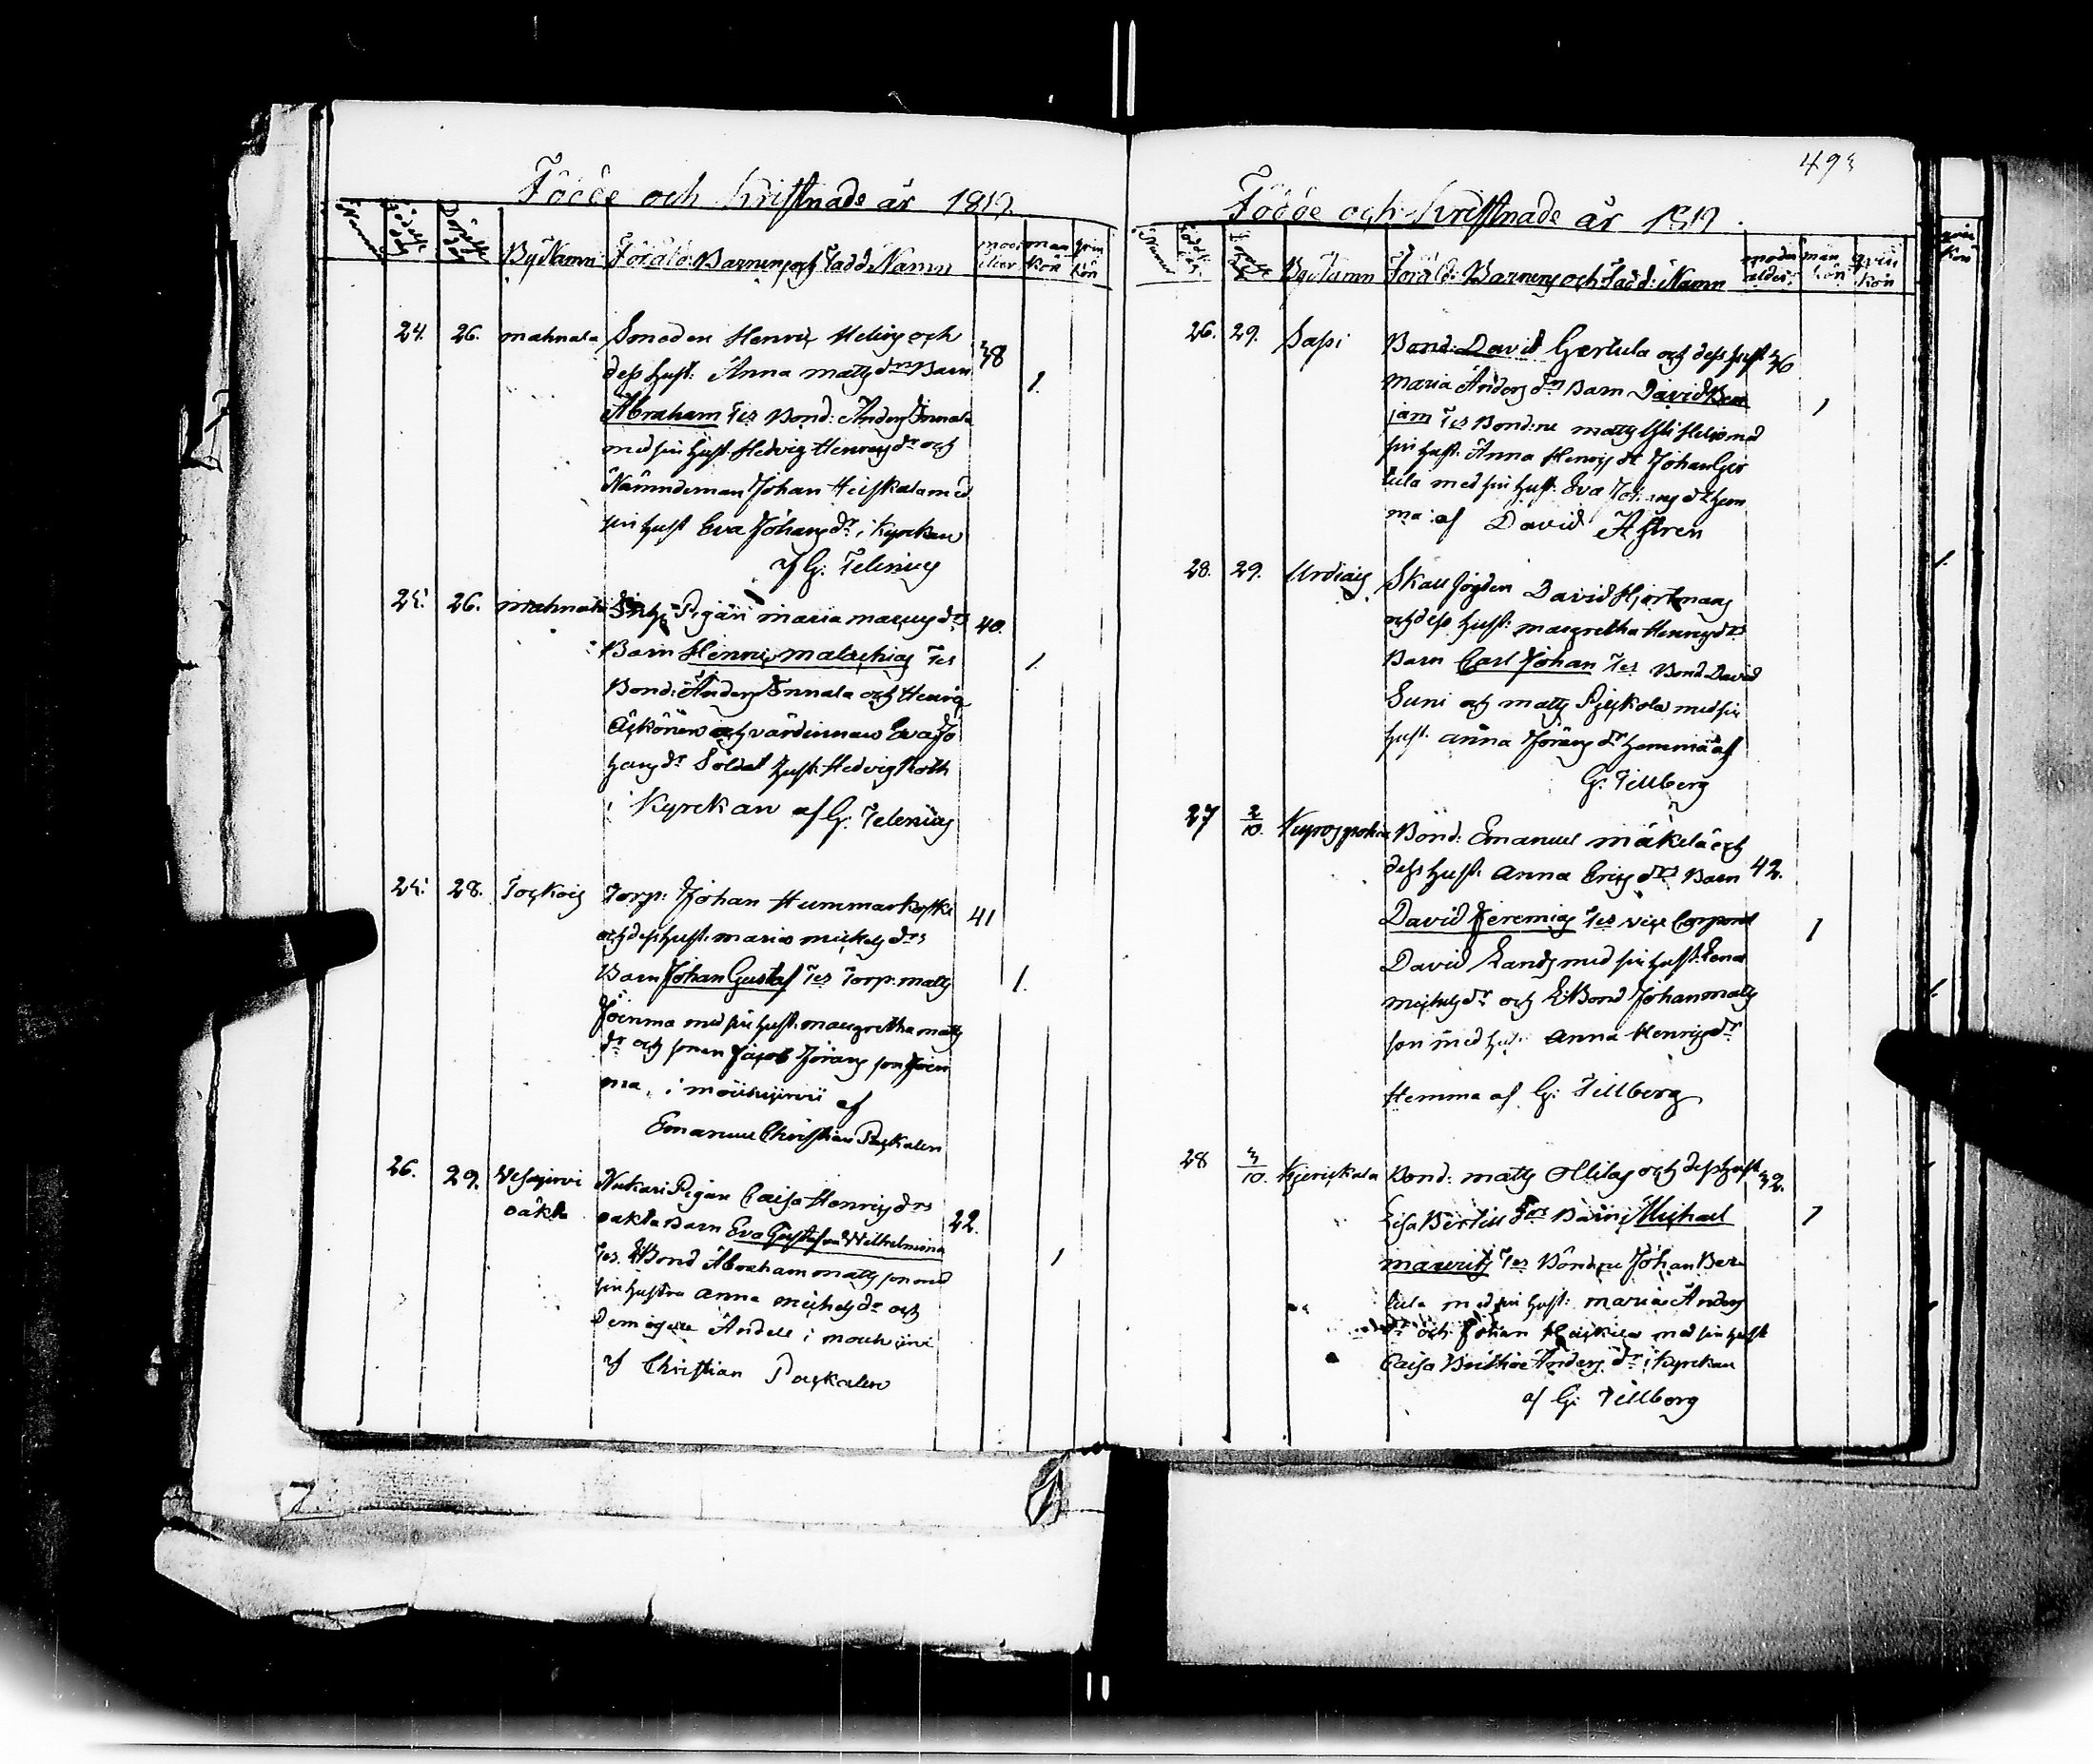 Födde och Kristnade år 1819.
Numer
Födelse dag
Döpelse dag
By Namn
Föräld: Barnens och Fadd: Namn
moders ålder
man kön
qvin kön
24. 26. mahnala Smeden Henric Helin och 38
dess hust: Anna matts drs Barn 1.
Abraham Tes Bond: Anders Innala
med sin hust. Hedvig Henrics dr och
Nämndeman Johan Heiskala med
sin hust Eva Johans dr i Kyrckan
af G: Telenius
25. 26. mahnala Pigan maria marcus drs 40.
Barn Henric malachias Tes 1.
Bond: Anders Innala och Henric
och värdinnan Eva Jo
hans dr Soldat hust. Hedvig Roth
i Kyrckan af G. Telenius
25. 28. Torp: Johan Hummarkoski 41
och dess hust. maria mickels drs
Barn Johan Gustaf Tes Torp. matts 1.
med sin hust. margretha matts
dr och sonen Jacob Jörans son
ma, i af
Emanuel Christian Paskalen
26. 29. Vesajervi Pigan Caisa Henrics drs 22.
oäkta oäkta Barn Eva Gustafva Wilhelmina 1
Tes. Bond Abraham matts son med
sin hustru anna michels dr och
Andell i
af Christian Paskalen
493
Födde och Kristnade år 1819.
Numer
By Namn
Föräld: Barnens och Fadd: Namn
moders ålder
man kön
qvin kön
26. 29. Sasi Bond: David Gertula och dess hust 36
maria Anders drs Barn David Ben
jam Tes Bondene matts Heis med 1
sin hust. Anna Henrics dr Johan Ger
tula med sin hust. Eva dr hem
ma af David Astren
28. 29. Urdiais David Hjortman
och dess hust: margretha Henrics drs
Barn Carl Johan Tes Bond David
Suni och matts med sin
hust. anna Jörans dr hemma af
G. Tillberg
27 2/10. Kyrospohia Bond: Emanuel mäkelä och
dess hust. Anna Erics drs Barn 42.
David Jeremias Tes vice Corporal 1
David Lands med sin hust. Lena
michels dr och Bond Johan matts
son med hust. anna Henrics dr
Hemma af G: Tillberg
28 3/10. Kierickala Bond: matts Ollilas och dess hust 32.
Lisa Bertill drs Barn Michael 1
mauritz Tes Böndene Johan Ber
tula med sin hust: maria Anders
dr och Johan med sin hust
Caisa Anders dr i Kyrckan
af G: Tillberg
qvin kön
1.
1.